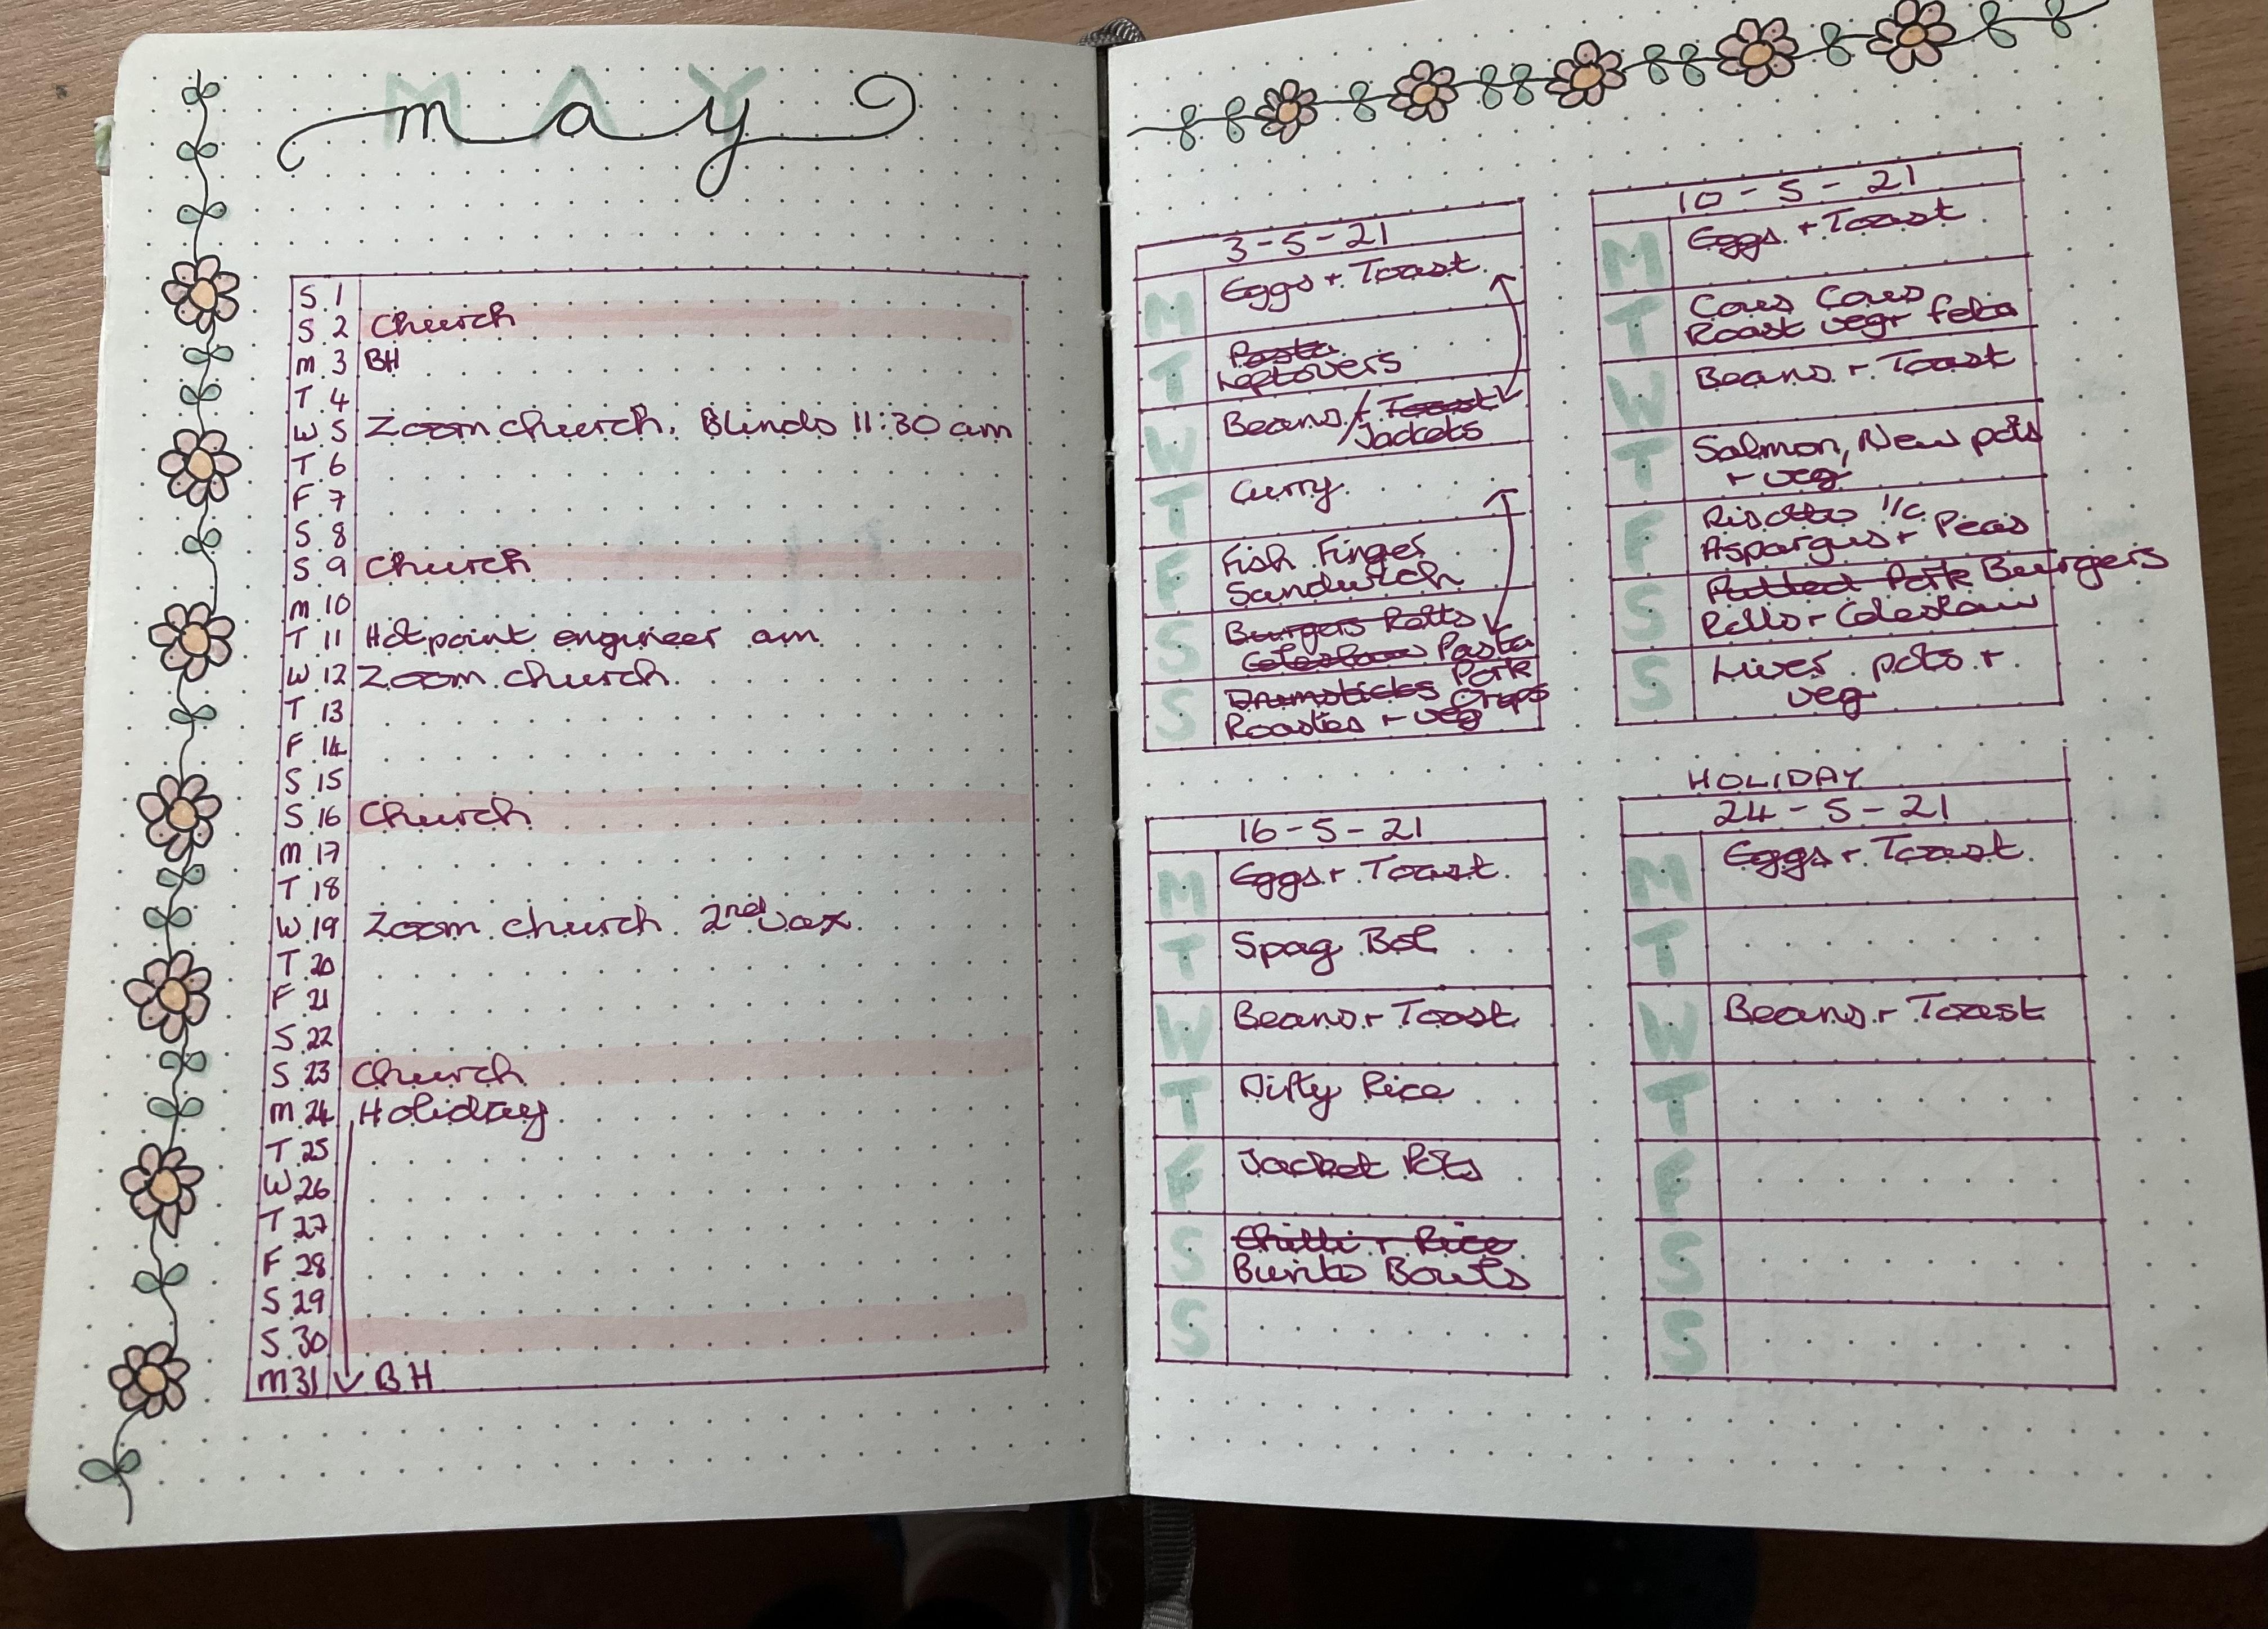 MAY
may
S 1
S 2 Church
M 3 BH
T 4
W 5 Zoom church, Blinds 11:30 am
T 6
F 7
S 8
S 9 Church
M 10
T 11 Hotpoint engineer am
W 12 Zoom church
T 13
F 14
S 15
S 16 Church
M 17
T 18
W 19 Zoom church 2nd vax
T 20
F 21
S 22
S 23 Church
M 24 Holiday
T 25
W 26
T 27
F 28
S 29
S 30
M 31 BH
3-5-21
M Eggs + Toast
T Pasta
Leftovers
W Beans / + Toast
Jackets
T Curry
F Fish Finger
Sandwich
S Burgers Rolls
Coleslaw Pasta
S Drumsticks Pork
Chops
Roasties + veg
10-5-21
M Eggs + Toast
T Cous Cous
Roast veg + feta
W Beans + Toast
T Salmon, New pots
+ veg
F Risotto
Aspargus + Peas
S Pork Burgers
Rolls + Coleslaw
S Liver pots +
veg
16-5-21
M Eggs + Toast
T Spag Bol
W Beans + Toast
T Dirty Rice
F Jacket Pots
S Chilli + Rice
Burrito Bowls
S
HOLIDAY
24-5-21
M Eggs + Toast
T
W Beans + Toast
T
F
S
S